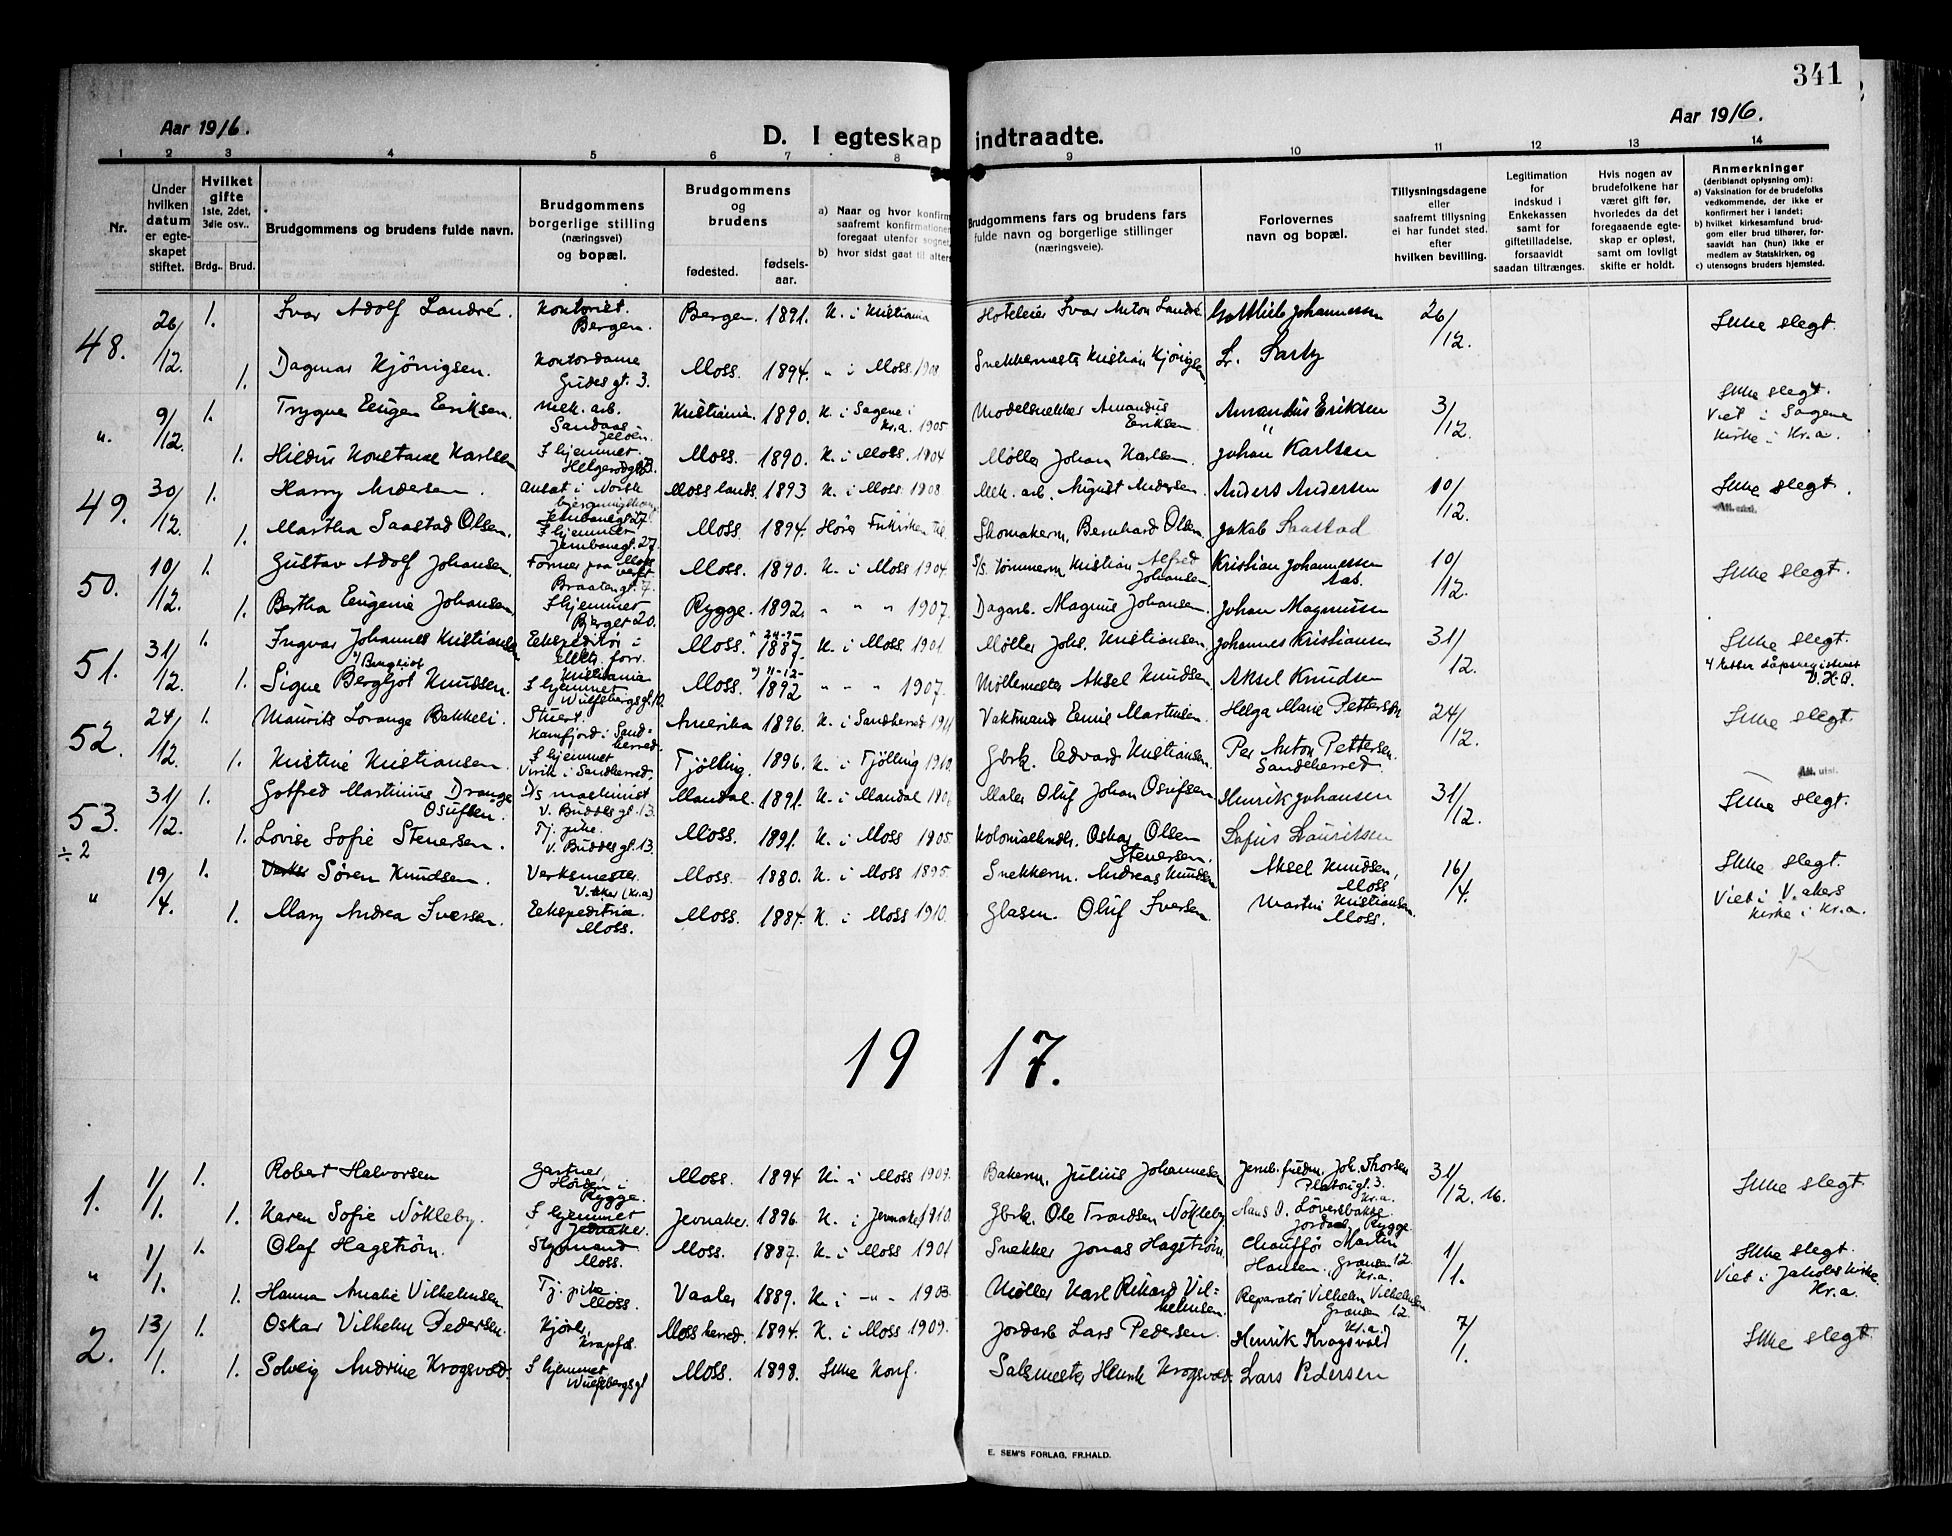 341
Aar 1916.
D. I egteskap indtraadte.
Aar 1916.
1 2 3 4 5 6 7 8 9 10 11 12 13 14
Nr.
Under hvilken datum er egteskapet stiftet.
Hvilket gifte 1ste, 2det, 3die osv..
Brdg.. Brud.
Brudgommens og brudens fulde navn.
Brudgommens borgerlige stilling (næringsvei) og bopæl.
Brudgommens og brudens
fødested.
fødselsaar.
a) Naar og hvor konfirm
saafremt konfirmationen
foregaat utenfor sognet.
b) hvor sidst gaat til alters
Brudgommens fars og brudens fars fulde navn og borgerlige stillinger (næringsveie).
Forlovernes navn og bopæl.
Tillysningsdagene eller saafremt tillysning ei har fundet sted, efter hvilken bevilling.
Legitimation for indskud i Enkekassen samt for giftetilladelse, forsaavidt saadan tiltrænges.
Hvis nogen av brudefolkene har været gift før, hvorledes da det foregaaende egteskap er opløst, samt om lovligt skifte er holdt.
Anmerkninger (deriblandt oplysning om):
a) Vaksination for de brudefolks vedkommende, der ikke er konfirmert her i landet;
b) hvilket kirkesamfund brudgom eller brud tilhører, forsaavidt han (hun) ikke er medlem av Statskirken, og
c) utensogns bruders hjemsted.
48. 26/12. 1. Ivar Adolf Landré. Kontorist. Bergen. Bergen. 1891. K. i Kristiania Hoteleier Ivar Anton Landré Gottlieb Johannessen 26/12. Ikke slegt.
1. Dagmar Kjönigsen. Kontordame Gudes gt. 3. Moss. 1894. " i Moss 1908 Snekkermester Kristian Kjönigsen L.
" 9/12. 1. Trygve Eugen Eriksen. Mek. arb. Sandaas Jeløen. Kristiania. 1890. K. i Sagene i Kr.a. 1905 Modelsnekker Amandus Eriksen Amandus Eriksen 3/12. Ikke slegt. Viet i Sagene Kirke i Kr.a.
1. Hildur Konstanse Karlsen I hjemmet. Moss. 1890. K. i Moss. 1904 Møller Johan Karlsen. Johan Karlsen
49. 30/12. 1. Harry Andersen. Ansat i Norsk Moss lands. 1893 K. i Moss 1908. Mek. arb. August Andersen. Anders Andersen 10/12. Ikke slegt. Att. utst.
1. Martha Saastad Olsen. I hjemmet Jernbanegt. 27. Moss. 1894. Hører Frikirken til. Skomakerm. Bernhard Olsen Jakob Saastad
50. 10/12. 1. Gustav Adolf Johansen. Former paa Moss verft Braatengt. 4. Moss. 1890. K. i Moss 1904. S/S. tømmerm Kristian Alfred Johansen Kristian Johannessen Aas. 10/12. Ikke slegt.
1. Bertha Eugenie Johansen I hjemmet Bjerget 20. Rygge. 1892. " " " 1907. Dagarb. Magnus Johansen. Johan Magnussen
51. 31/12. 1. Ingvar Johannes Kristiansen Ekspeditør i elektr. forr. Kristiania Moss. 24-7- 1887. K. i Moss 1901 Møller Johs. Kristiansen Johannes Kristiansen 31/12. Ikke slegt.
1. Signe Bergljot Knudsen. Bergliot I hjemmet Wulfsbergs gt. 10. Moss. 11-12- 1892 " " " 1907. Møllemester Aksel Knudsen Aksel Knudsen
52. 24/12. 1. Maurits Lorange Bakkeli. Stuert. Kamfjord i Sandherred. Amerika 1896. K. i Sandherred 1911 Vaktmand Emil Martinsen. Helga Marie Pettersen 24/12. Ikke slegt.
1. Kristine Kristiansen. I hjemmet Virik i Sandherred. Tjölling. 1896. K. i Tjölling 1910. Gbrk. Edvard Kristiansen. Per Anton Pettersen. Sandeherred. Att. utst.
53. ÷2 31/12. 1. Gotfred Martinius Drange Osufsen. D/s maskinist V. Buddes gt. 13. Mandal. 1891. K. i Mandal 1906 Maler Oluf Johan Osufsen Henrik Johansen 31/12. Ikke slegt.
1. Lovise Sofie Stenersen. Tj. pike. V. Buddes gt. 13. Moss. 1891. K. i Moss 1905. Kolonialhndlr. Oskar Olsen Stenersen. Sofus Lauritsen
" 19/4. 1. Søren Knudsen. Verksmester. V. Aker (Kr.a) Moss. 1880. K. i Moss 1895. Snekkerm. Andreas Knudsen Aksel Knudsen, Moss 16/4. Ikke slegt. Viet i V. Akers Kirke i Kr.a.
1. Mary Andrea Iversen. Ekspeditrice. Moss. Moss. 1884. K. i Moss 1910. Glasm. Oluf Iversen. Martin Kristiansen. Moss.
1917.
1. 1/1. 1. Robert Halvorsen Gartner, i Rygge. Moss. 1894 K. i Moss 1909. Bakerm. Julius Johannesen Joh. Thorsen Platougt. 3. Kr.a. 31/12. 16. Ikke slegt.
1. Karen Sofie Nökleby. I hjemmet Jevnaker. Jevnaker. 1896. K. i Jevnaker 1910. Gbrk. Ole Trondsen Nökleby Hans O. Løversbakke Rygge.
" 1/1. 1. Olaf Hagstrøm. Styrmand Moss. Moss. 1887. K. i Moss 1901 Snekker Jonas Hagstrøm. Chauffør Martin Hansen, Grænsen 12. Kr.a. 1/1. Ikke slegt. Viet i Jakobs Kirke. Kr.a.
1. Hanna Amalie Vilhelmsen Tj. pike Moss. Vaaler 1889. K. i -"- 1903. Møller Karl Rikard Vilhelmsen. Reparatør Vilhelm Vilhelmsen Grænsen 12 Kr.a.
2. 13/1. 1. Oskar Vilhelm Pedersen. Kjører, Krapfos. Moss herred. 1894. K. i Moss 1909. Jordarb Lars Pedersen. Henrik Krogsvold 7/1. Ikke slegt.
1. Solveig Andrine Krogsvold. I hjemmet Wulfsbergs gt Moss. 1898. Ikke Konf. Salsmester Henrik Krogsvold. Lars Pedersen
E. SEM'S FORLAG, FR.HALD.